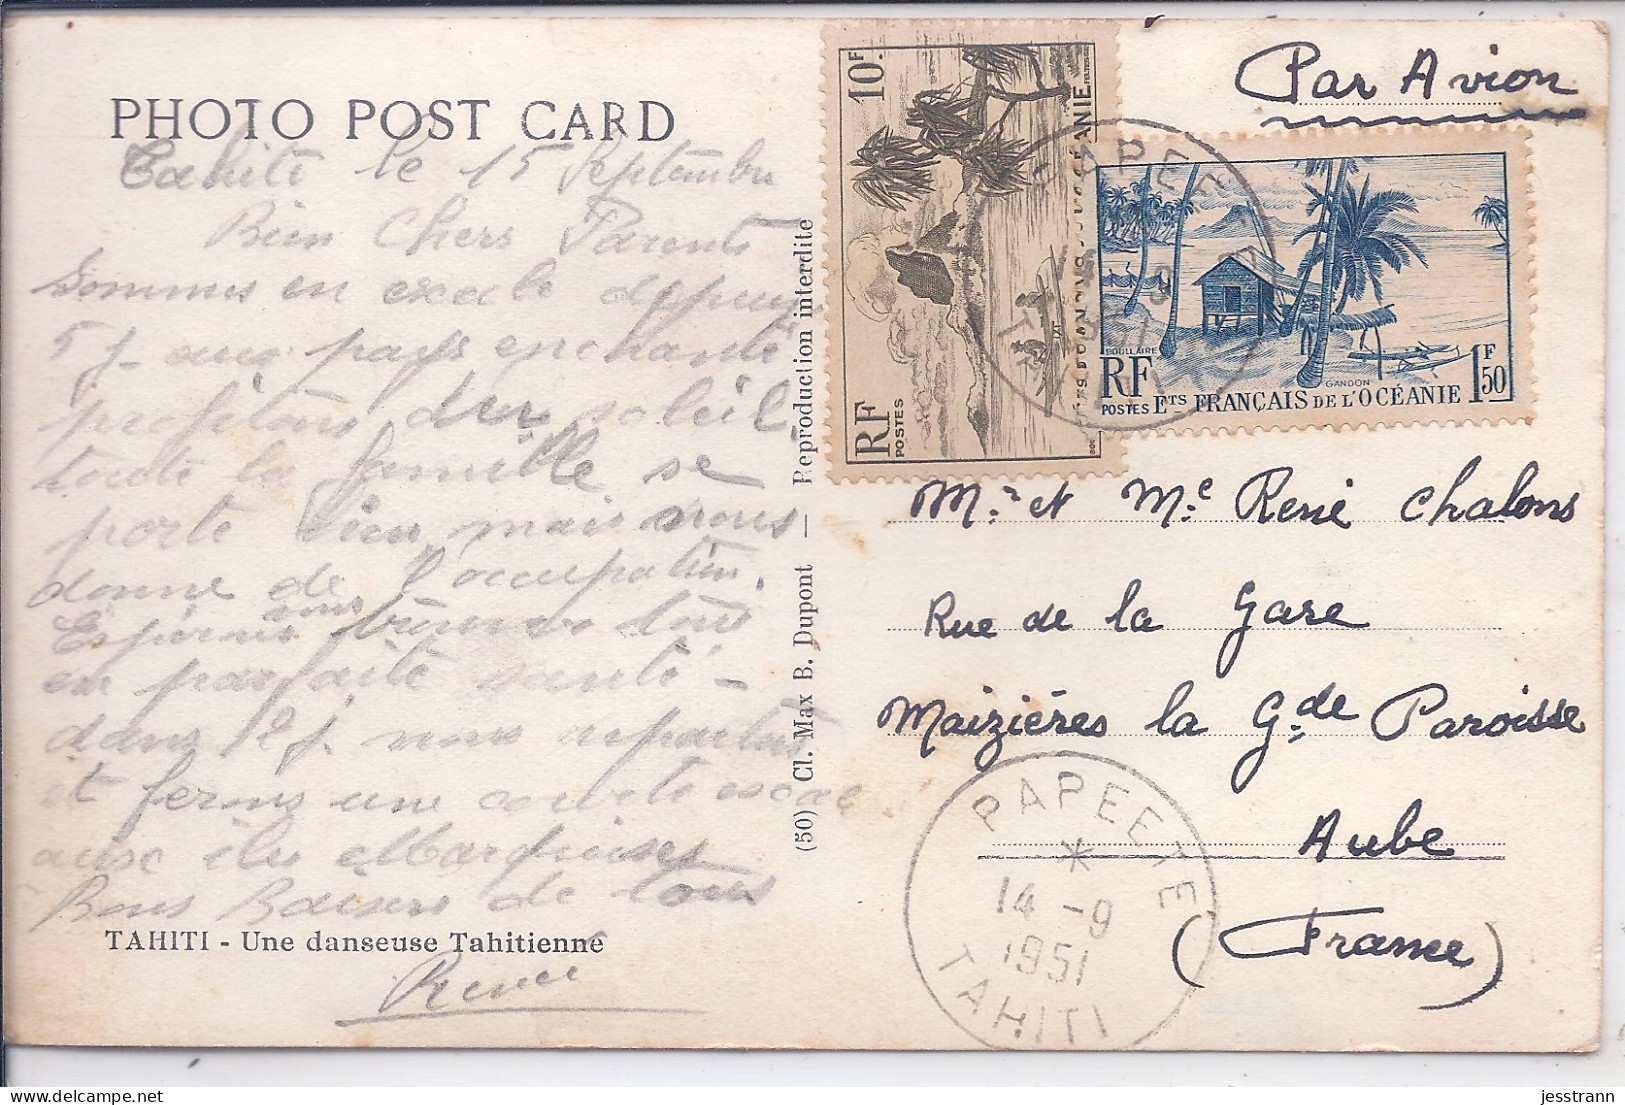 PHOTO POST CARD
Tahiti le 15 Septembre
Bien Chers Parents
Sommes en escale depuis
5 j. aux pays enchanté
profitons du soleil.
toute la famille se
porte bien mais nous
donne de l'occupation.
Espérons vous tous
en parfaite santé -
dans 2 j. nous repartons
et ferons une courte escale
aux îles Marquises
Bons Baisers de tous
TAHITI - Une danseuse Tahitienne
Renée
(50) Cl. Max B. Dupont — Reproduction interdite
10F
RF
POSTES
OCÉANIE
Par Avion
PAPEETE
BOUILLAIRE
GANDON
RF
POSTES
Ets FRANÇAIS DE L'OCÉANIE
1F50
Mr et Me René Chalons
Rue de la Gare
Maizières la Gde Paroisse
Aube
(France)
PAPEETE
*
14 -9
1951
TAHITI
jesstrann